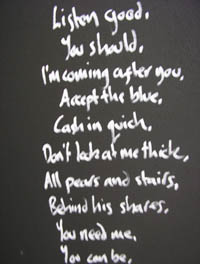 Listen good.
You should.
I'm coming after you.
Accept the blue.
Cash in quick.
Don't look at me thick.
All pears and stairs.
Behind his shares.
You need me.
You can be.